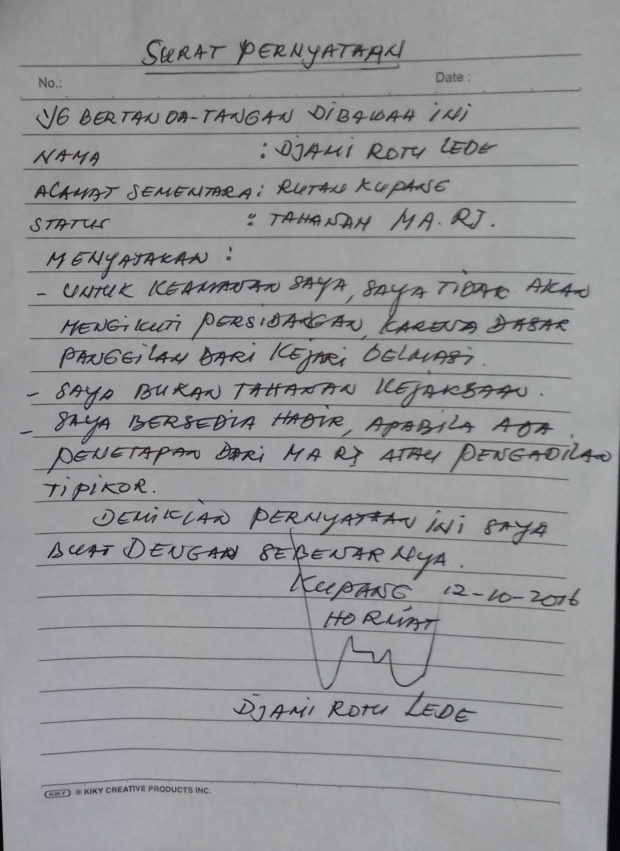 SURAT PERNYATAAN
No.: Date :
YG BERTANDA-TANGAN DIBAWAH INI
NAMA : DJAMI ROTU LEDE
ALAMAT SEMENTARA : RUTAN KUPANG
STATUS : TAHANAN MA. RI.
MENYATAKAN :
- UNTUK KEAMANAN SAYA, SAYA TIDAK AKAN
MENGIKUTI PERSIDANGAN, KARENA DASAR
PANGGILAN DARI KEJARI OELMASI.
- SAYA BUKAN TAHANAN KEJAKSAAN.
- SAYA BERSEDIA HADIR, APABILA ADA
PENETAPAN DARI MA RI ATAU PENGADILAN
TIPIKOR.
DEMIKIAN PERNYATAAN INI SAYA
BUAT DENGAN SEBENARNYA.
KUPANG 12-10-2016
HORMAT
DJAMI ROTU LEDE
KIKY ® KIKY CREATIVE PRODUCTS INC.